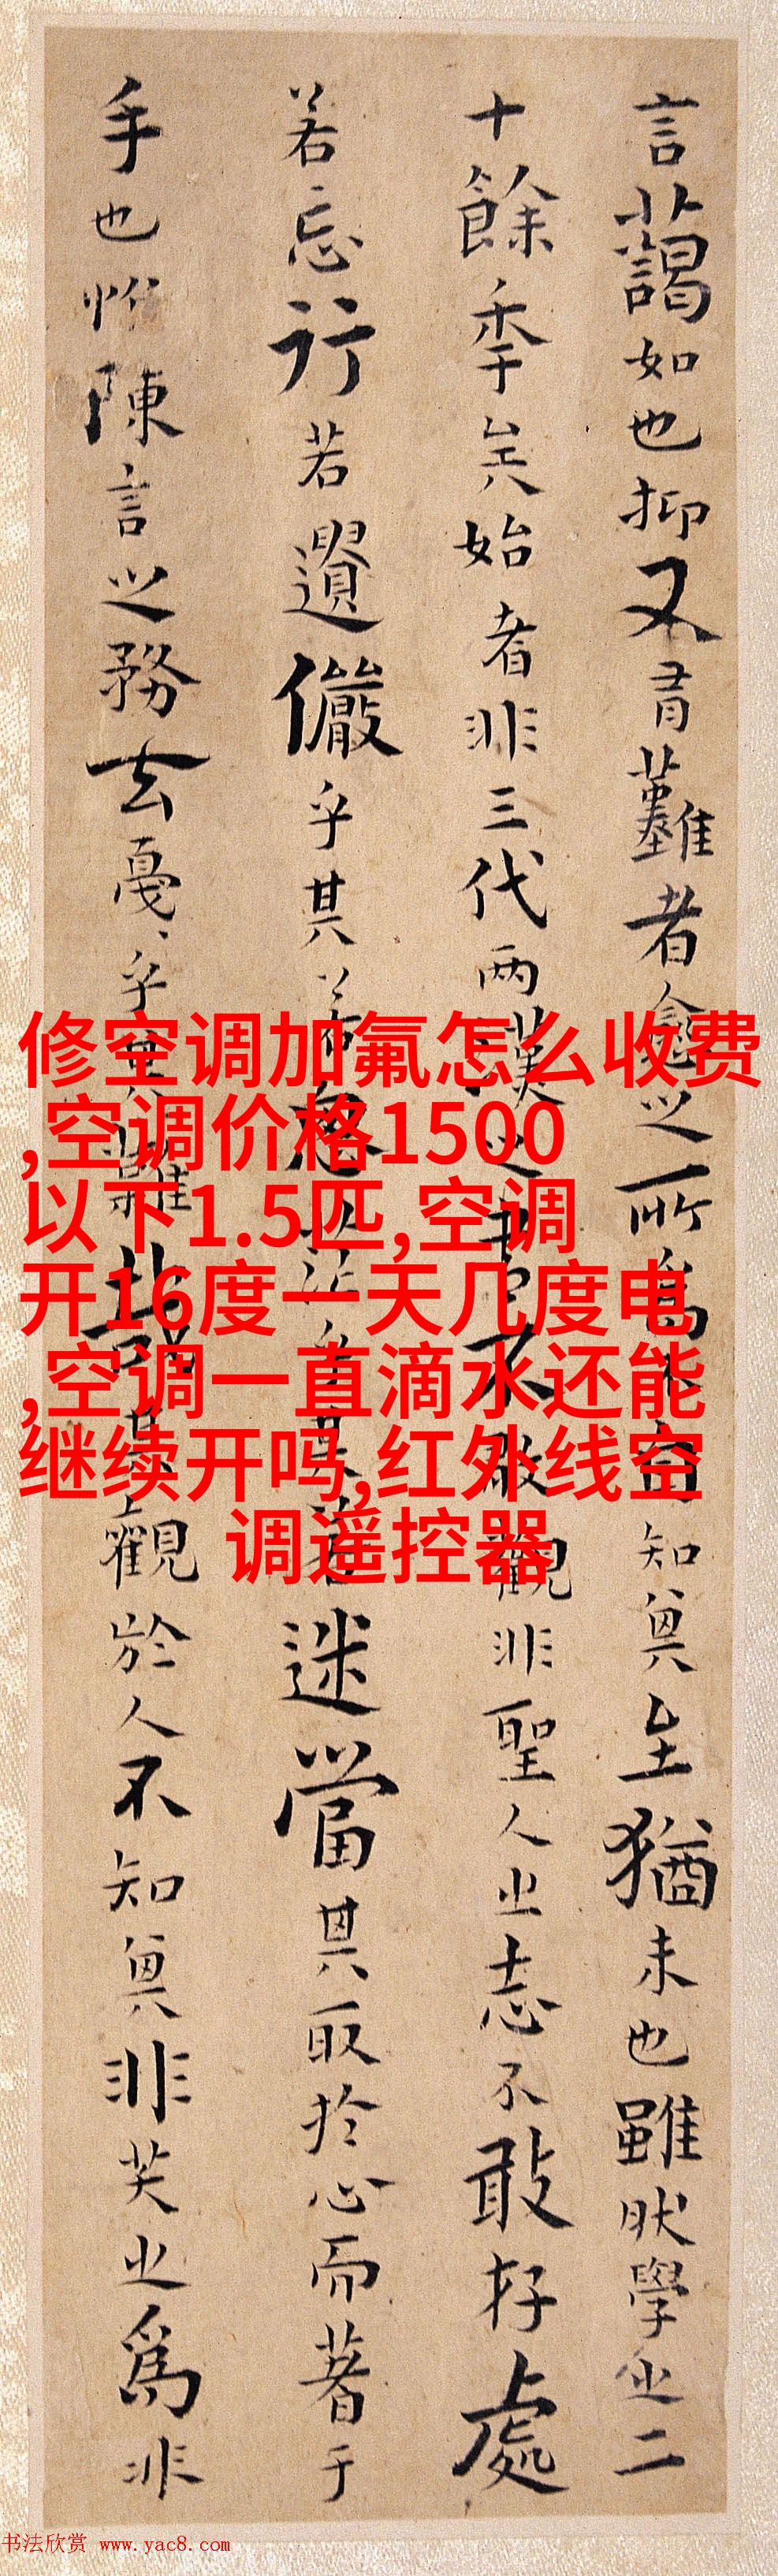 言藹如也抑又有難者愈之所為不自知其至猶未也雖然學之二
十餘年矣始者非三代兩漢之書不敢觀非聖人之志不敢存處
若忘行若遺儼乎其若思茫乎其若迷當其取於心而著于
手也惟陳言之務去戛〻乎其難哉其觀於人不知其非笑之為非
修空调加氟怎么收费
,空调价格1500
以下1.5匹,空调
开16度一天几度电
,空调一直滴水还能
继续开吗,红外线空
调遥控器
书法欣赏 www.yac8.com